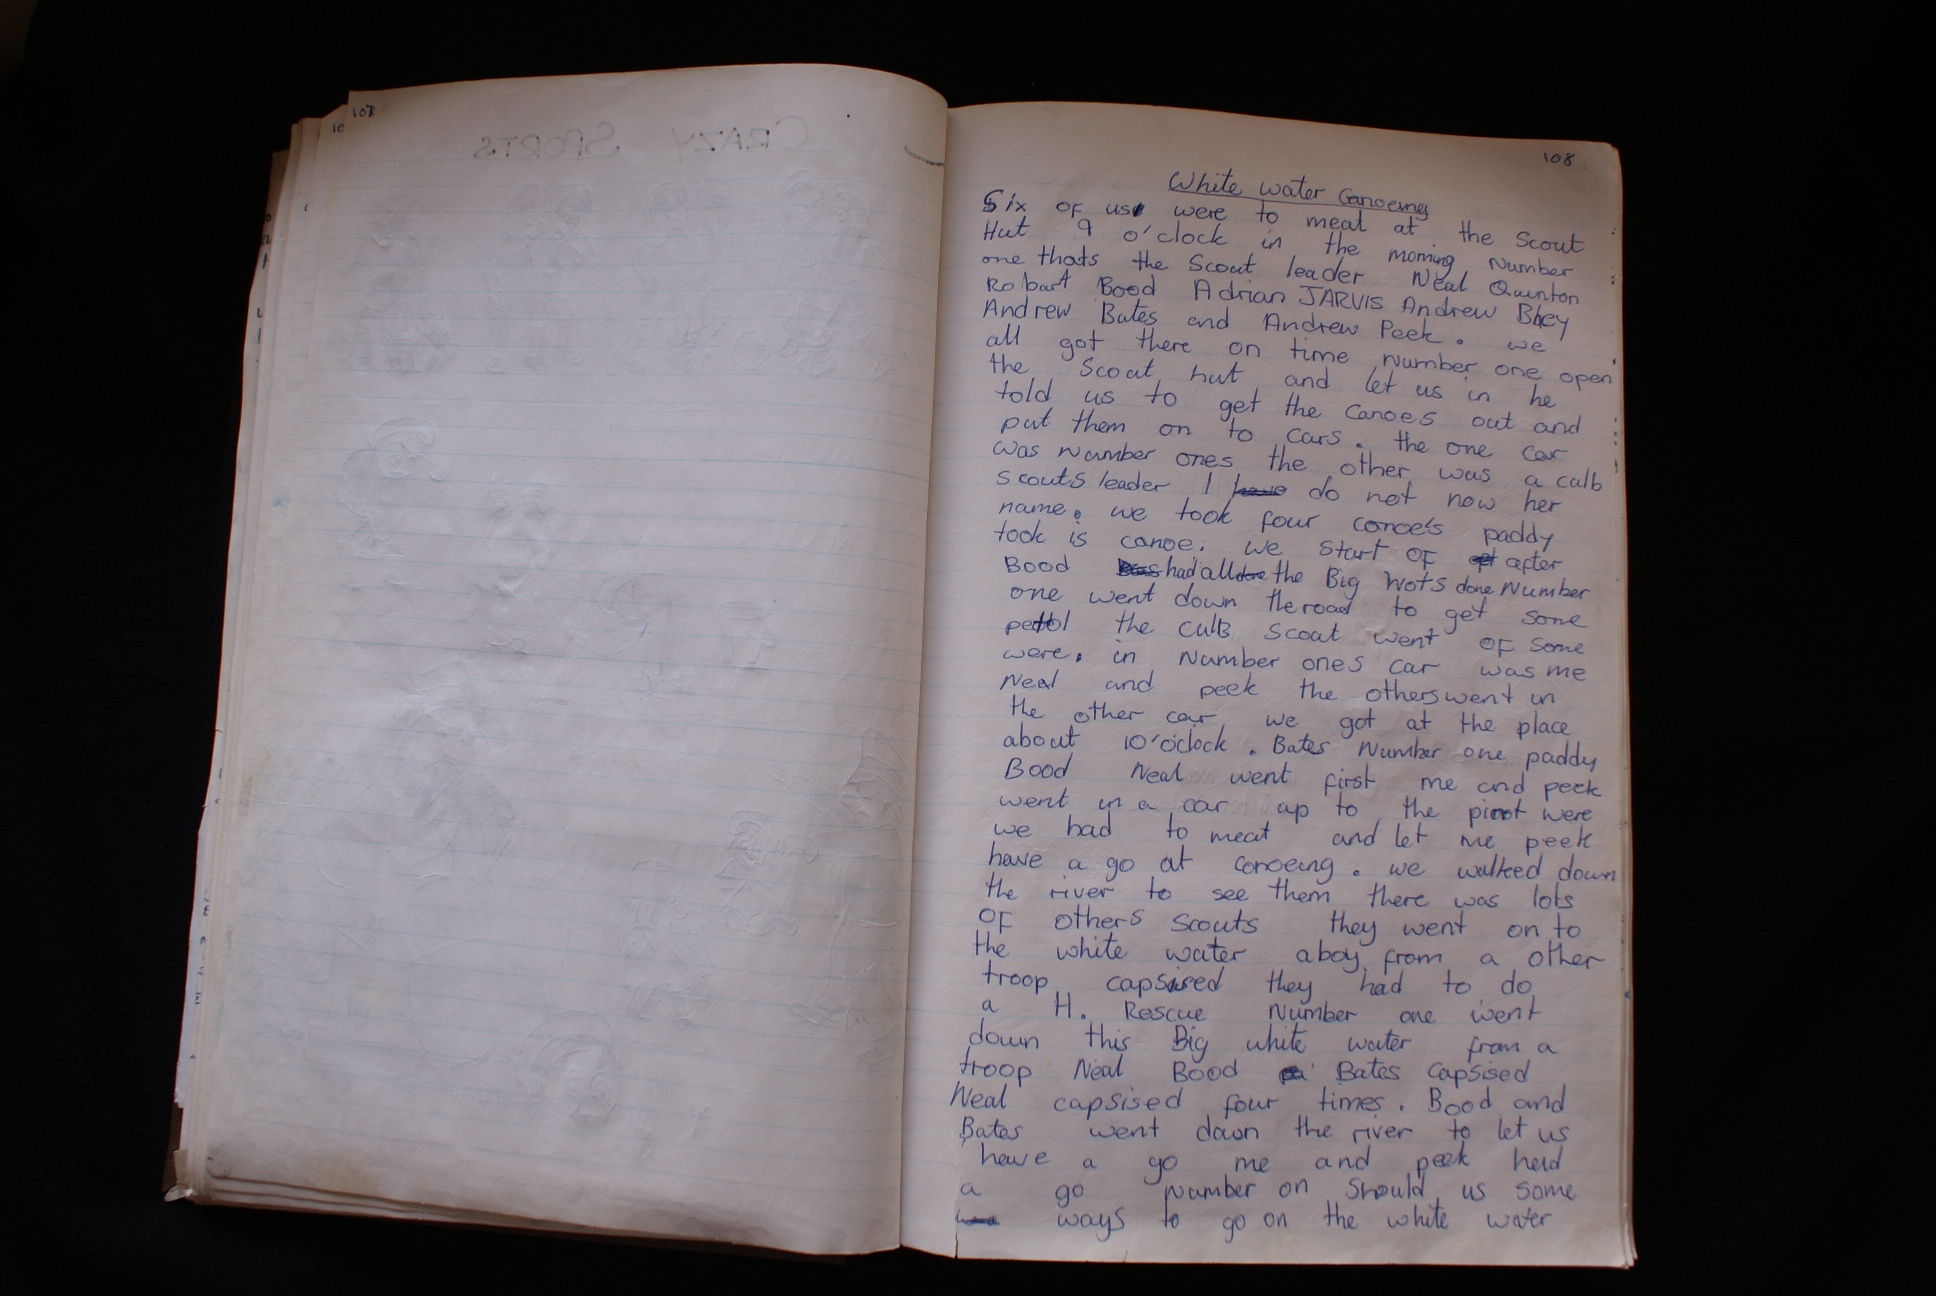 107
10
CRAZY SPORTS
108
White water Canoeing
Six of us were to meat at the Scout
Hut 9 o'clock in the morning Number
one thats the Scout leader Neal Quinton
Robart Bood Adrian JARVIS Andrew
Andrew Bates and Andrew Peek. we
all got there on time number one open
the Scout hut and let us in he
told us to get the canoes out and
put them on to cars. the one car
was number ones the other was a culb
scouts leader I have do not now her
name. we took four canoe's paddy
took is canoe. we start of after
Bood had all the Big Wots done Number
one went down the road to get some
pettol the culb Scout went of some
were. in Number ones car was me
Neal and peek the others went in
the other car we got at the place
about 10 o'clock. Bates Number one paddy
Bood Neal went first me and peek
went in a car ap to the pinot were
we had to meat and let me peek
have a go at canoeing. we walked down
the river to see them there was lots
of others Scouts they went on to
the white water a boy from a other
troop capsised they had to do
a H. Rescue Number one went
down this Big white water from a
troop Neal Bood Bates capsised
Neal capsised four times. Bood and
Bates went down the river to let us
have a go me and peek had
a go number on should us some
ways to go on the white water